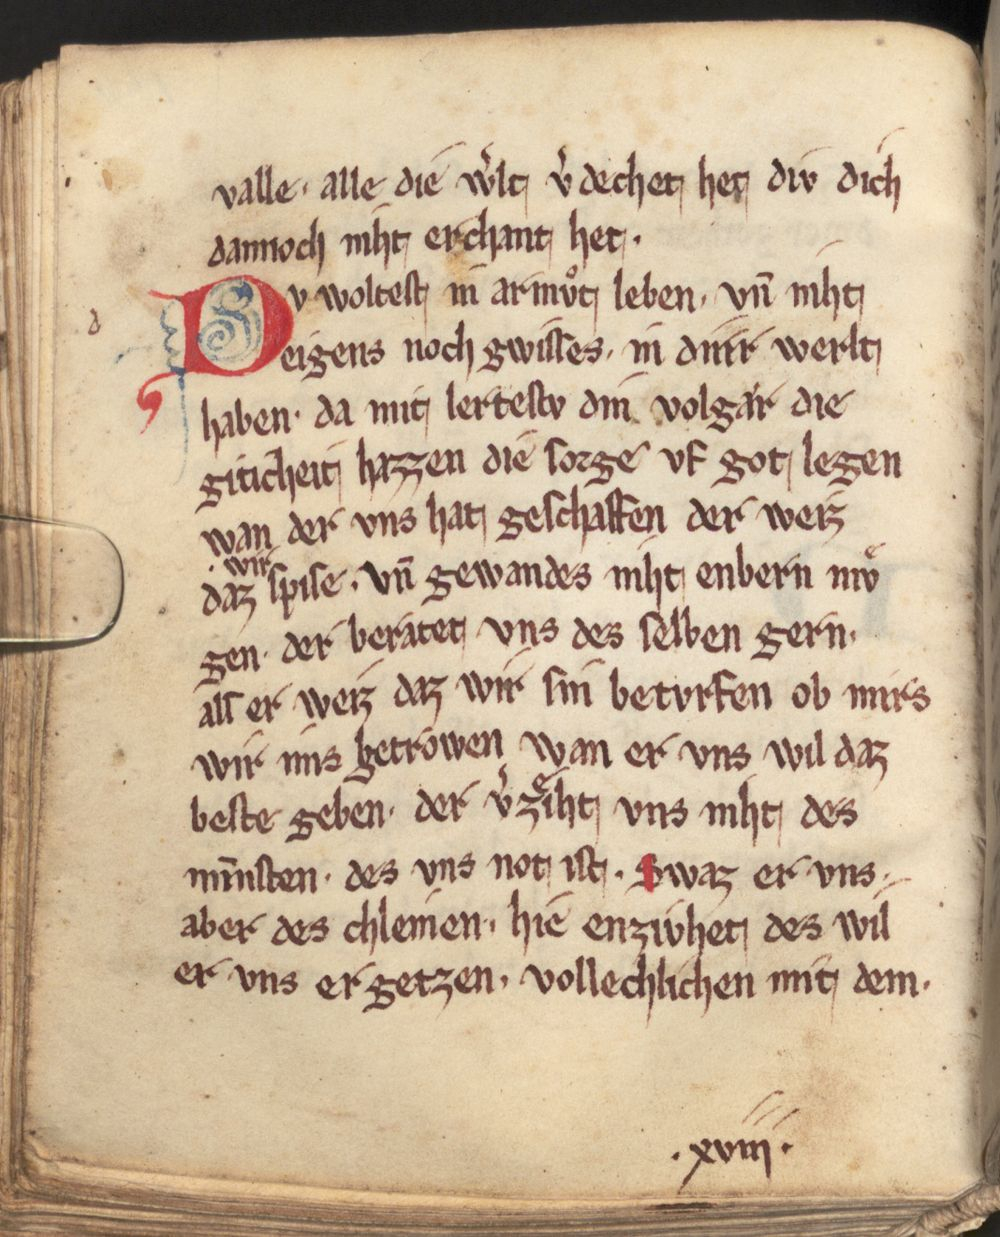 valle · alle die w̓lt v̓dechet het div dich
dannoch niht erchant het ·
Dv woltest in armv̊t leben · vn̄ niht
d
eigens noch gwisses · in dirr werlt
haben · da mit lertestv din volgær die
giticheit hazzen die sorge vf got legen
wan der vns hat geschaffen der weiz
· wir
daz spise · vn̄ gewandes niht enbern mv̊
gen · der beratet vns des selben gern ·
als er weiz daz wir sin betvrfen ob mirs
wir ims getrowen wan er vns wil daz
beste geben · der v̓zeiht vns niht des
minsten · des vns not ist · Swaz er vns ·
aber des chleinen · hie enzivhet des wil
er vns ergetzen · vollechlichen mit dem ·
· xviii ·